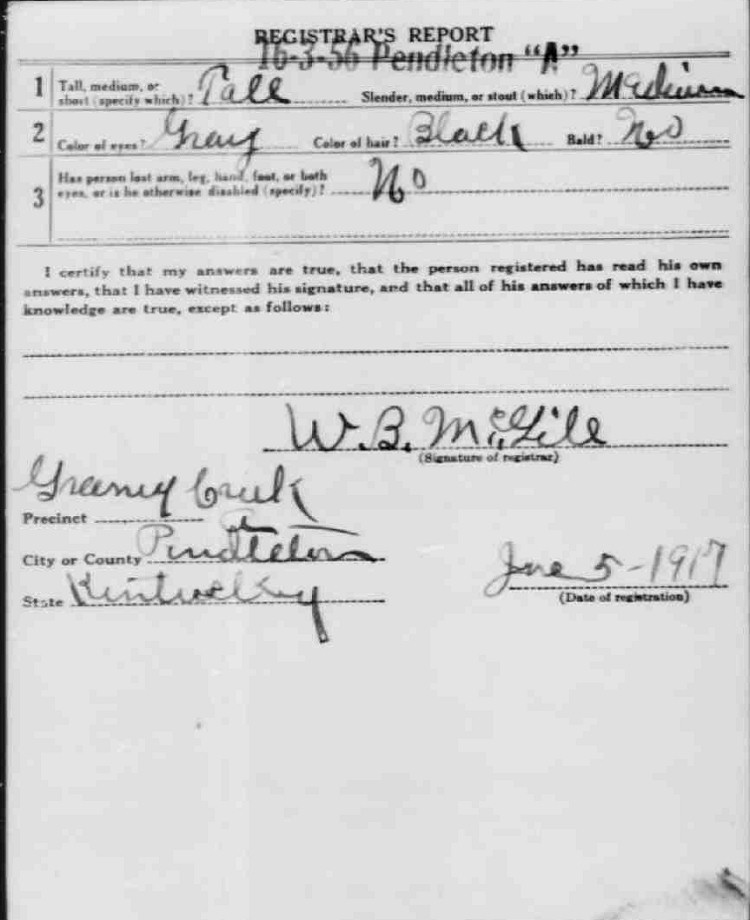 REGISTRAR'S REPORT
16-3-56 Pendleton "A"
1 Tall, medium, or short (specify which)? Tall Slender, medium, or stout (which)? Medium
2 Color of eyes? Gray Color of hair? Black Bald? No
3 Has person lost arm, leg, hand, foot, or both
eyes, or is he otherwise disabled (specify)? No
I certify that my answers are true, that the person registered has read his own
answers, that I have witnessed his signature, and that all of his answers of which I have
knowledge are true, except as follows:
W. B. McGill
(Signature of registrar)
Creek
Precinct
City or County Pendleton
State Kentucky
June 5-1917
(Date of registration)